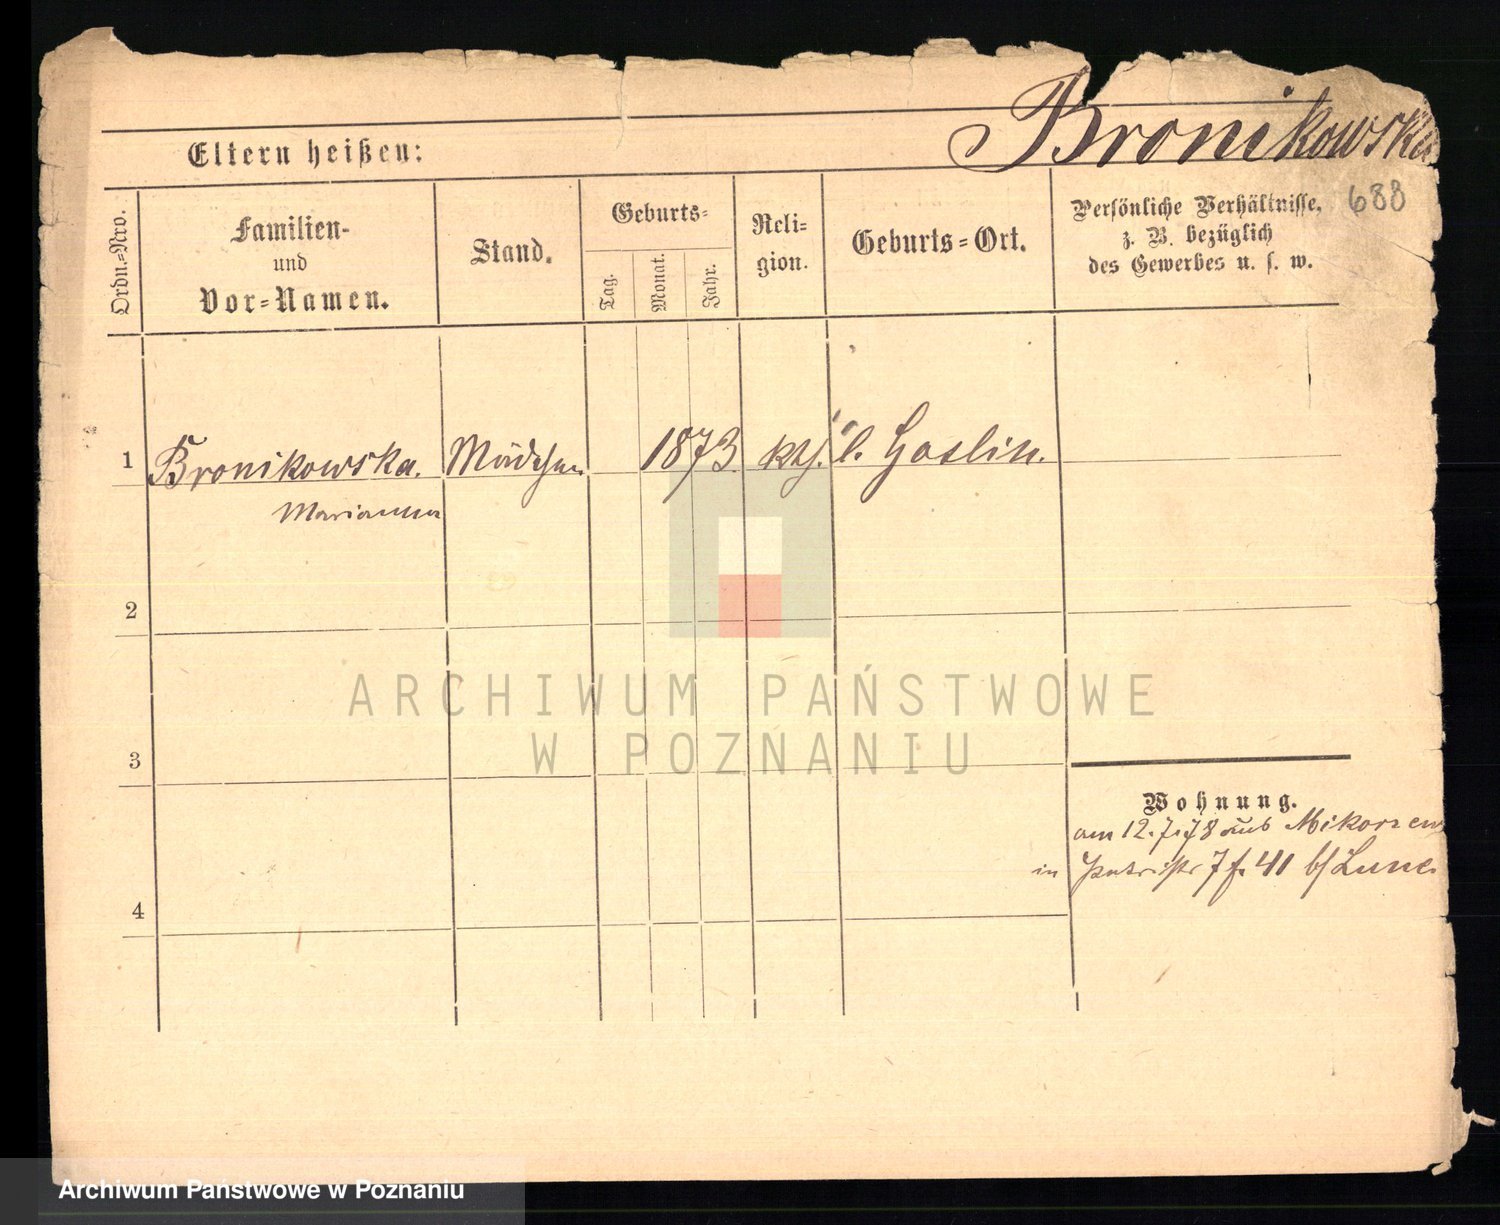 Bronikowska
Eltern heißen:
688
Ordn.-Nro.
Familien-
und
Vor-Namen.
Stand.
Geburts-
Tag.
Monat.
Jahr.
Reli-
gion.
Geburts-Ort.
Persönliche Verhältnisse,
z. B. bezüglich
des Gewerbes u. s. w.
1 Bronikowska. Mädchen 1873 kth. Goslin.
Marianna
2
3
4
Wohnung.
am 12.7.78 aus
in 41
ARCHIWUM PAŃSTWOWE
W POZNANIU
Archiwum Państwowe w Poznaniu